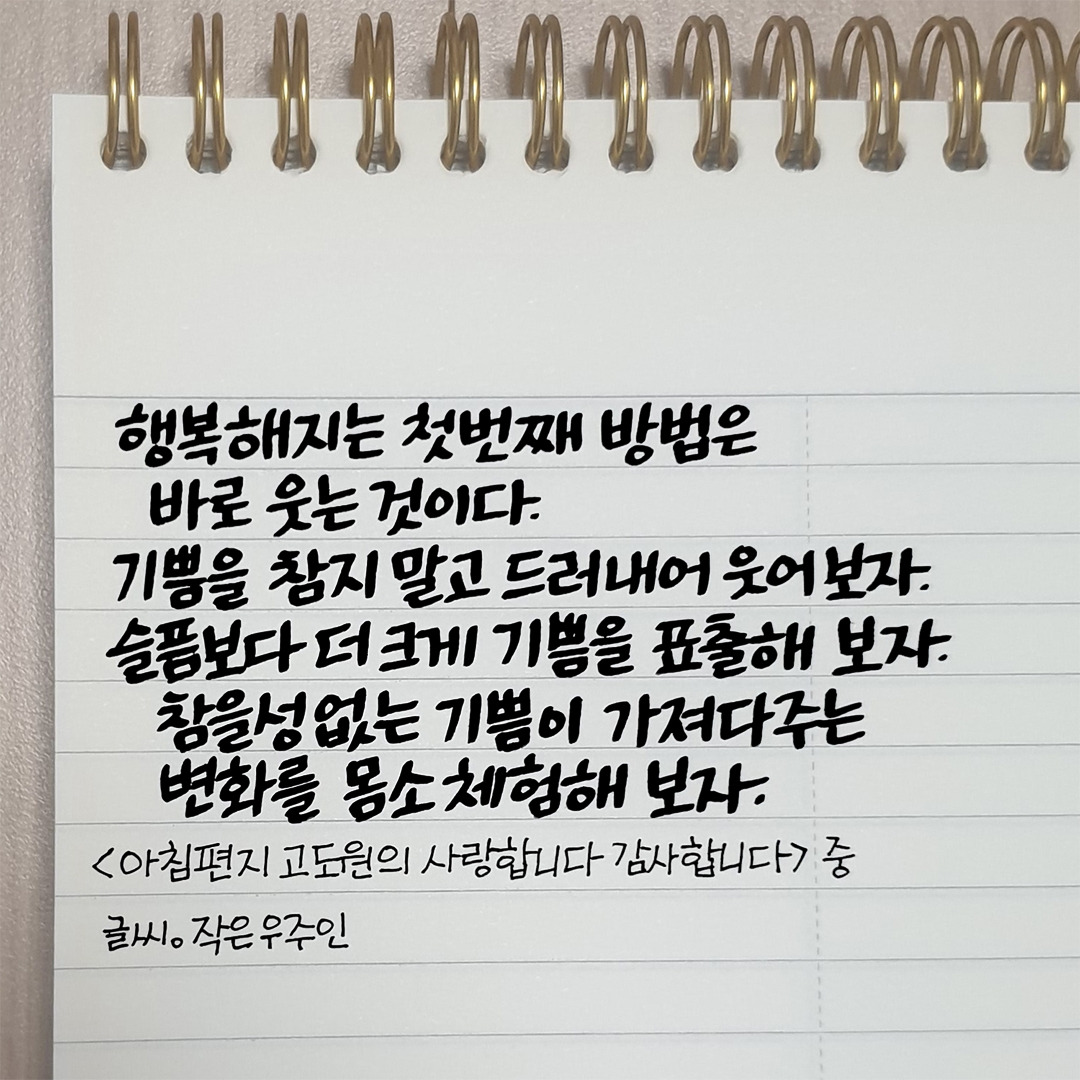 행복해지는 첫번째 방법은
바로 웃는 것이다.
기쁨을 참지 말고 드러내어 웃어보자.
슬픔보다 더 크게 기쁨을 표출해 보자.
참을성 없는 기쁨이 가져다주는
변화를 몸소 체험해 보자.
<아침편지 고도원의 사랑합니다 감사합니다> 중
글씨。작은우주인